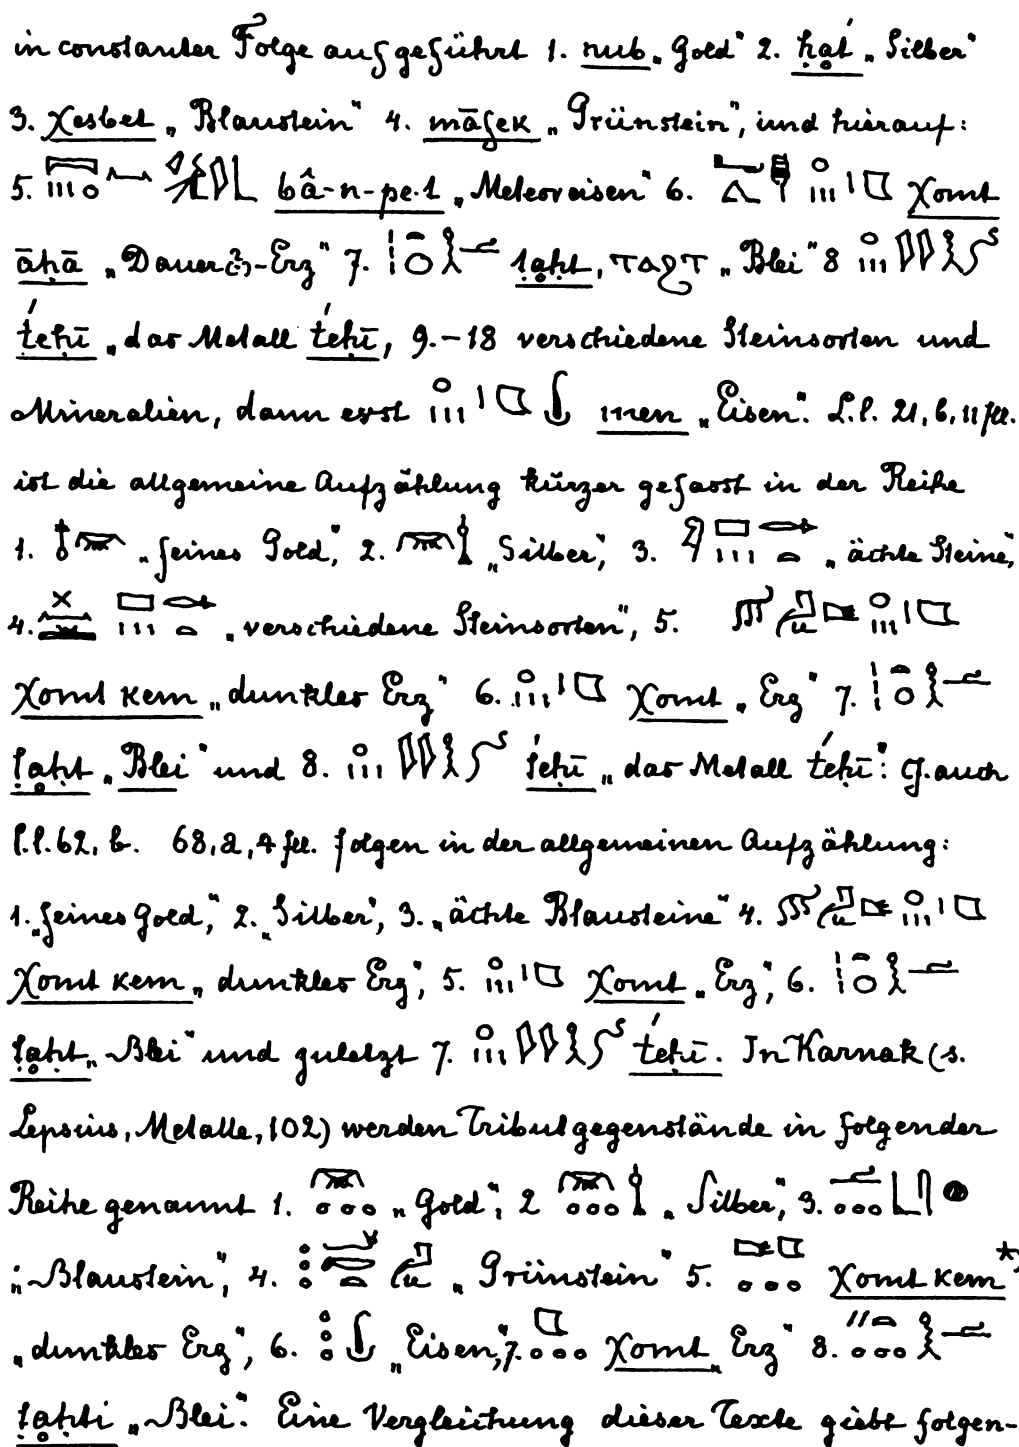 in constanter Folge aufgeführt 1. nub „Gold“ 2. ḥat́ „Silber“
3. χesbet „Blaustein“ 4. māfek „Grünstein“, und hierauf:
5. bâ-n-pe.t „Meteoreisen“ 6. χomt
āḥā „Dauer(?)-Erz“ 7. ṭaḥt, ⲧⲁϩⲧ „Blei“ 8
t́eḥī „das Metall t́eḥī, 9.–18 verschiedene Steinsorten und
Mineralien, dann erst men „Eisen“. L.l. 21, b, 11 fll.
ist die allgemeine Aufzählung kürzer gefasst in der Reihe
1. „feines Gold“, 2. „Silber“, 3. „ächte Steine“,
4. „verschiedene Steinsorten“, 5.
χomt kem „dunkles Erz“ 6. χomt „Erz“ 7.
ṭaḥt „Blei“ und 8. t́eḥī „das Metall t́eḥī“. Cf. auch
l.l. 62, b. 68, a, 4 fll. folgen in der allgemeinen Aufzählung:
1. „feines Gold“, 2. „Silber“, 3. „ächte Blausteine“ 4.
χomt kem „dunkles Erz“, 5. χomt „Erz“, 6.
ṭaḥt „Blei“ und zuletzt 7. t́eḥī. In Karnak (s.
Lepsius, Metalle, 102) werden Tributgegenstände in folgender
Reihe genannt 1. „Gold“, 2 „Silber“, 3.
„Blaustein“, 4. „Grünstein“ 5. χomt kem*)
„dunkles Erz“, 6. „Eisen“, 7. χomt „Erz“ 8.
ṭaḥti „Blei“. Eine Vergleichung dieser Texte giebt folgen-